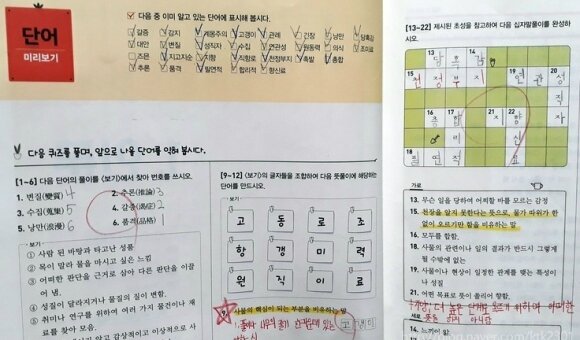 단어
미리보기
다음 중 이미 알고 있는 단어에 표시해 봅시다.
갈증 감지 계몽주의 고갱이 관례 긴장 낭만 당혹감
대안 변질 성직자 수집 연관성 원동력 의식 조미료
즈믄 지고지순 지향 직항로 천정부지 촉발 총합
추론 품격 필연적 합리적 향신료
다음 퀴즈를 풀며, 앞으로 나올 단어를 익혀 봅시다.
[1~6] 다음 단어의 풀이를 <보기>에서 찾아 번호를 쓰시오.
1. 변질(變質) 4
2. 추론(推論) 3
3. 수집(蒐集) 5
4. 갈증(渴症) 2
5. 낭만(浪漫) 6
6. 품격(品格) 1
보기
① 사람 된 바탕과 타고난 성품
② 목이 말라 물을 마시고 싶은 느낌
③ 어떠한 판단을 근거로 삼아 다른 판단을 이끌
어 냄.
④ 성질이 달라지거나 물질의 질이 변함.
⑤ 취미나 연구를 위하여 여러 가지 물건이나 재
료를 찾아 모음.
않고 감상적이고 이상적으로 사
[9~12] <보기>의 글자들을 조합하여 다음 뜻풀이에 해당하는
단어를 만드시오.
보기
고 동 로 조
항 갱 미 력
원 직 이 료
9. 사물의 핵심이 되는 부분을 비유하는 말
고갱이
[13~22] 제시된 초성을 참고하여 다음 십자말풀이를 완성하
시오.
13 당 혹 14 감
15 천 정 부 지 19 연 관 20 성
직
16 총 18 합 21 지 22 향 자
리 신
17 필 연 적 료
가로
13. 무슨 일을 당하여 어찌할 바를 모르는 감정
15. 천장을 알지 못한다는 뜻으로, 물가 따위가 한
없이 오르기만 함을 비유하는 말
16. 모두를 합함.
18. 사물의 관련이나 일의 결과가 반드시 그렇게
될 수밖에 없는
19. 사물이나 현상이 일정한 관계를 맺는 특성이
나 성질
21. 어떤 목표로 뜻이 쏠리어 향함.
세로
14. 느끼어 앎.